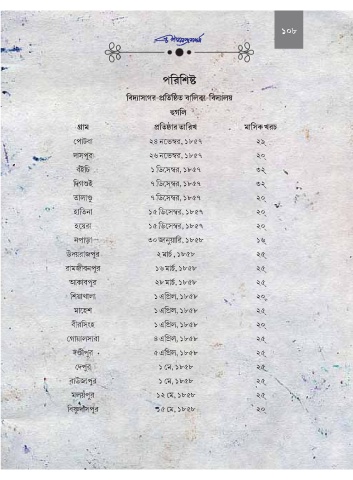 ১০৮
পরিশিষ্ট
বিদ্যাসাগর-প্রতিষ্ঠিত বালিকা-বিদ্যালয়
হুগলি
গ্রাম প্রতিষ্ঠার তারিখ মাসিক খরচ
পোটবা ২৪ নভেম্বর, ১৮৫৭ ২৯
দাসপুর ২৬ নভেম্বর, ১৮৫৭ ২০
বঁইচি ১ ডিসেম্বর, ১৮৫৭ ৩২
দিগশুই ৭ ডিসেম্বর, ১৮৫৭ ৩২
তালাণ্ডু ৭ ডিসেম্বর, ১৮৫৭ ২০
হাতিনা ১৫ ডিসেম্বর, ১৮৫৭ ২০
হয়েরা ১৫ ডিসেম্বর, ১৮৫৭ ২০
নপাড়া ৩০ জানুয়ারি, ১৮৫৮ ১৬
উদয়রাজপুর ২ মার্চ, ১৮৫৮ ২৫
রামজীবনপুর ১৬ মার্চ, ১৮৫৮ ২৫
আকাবপুর ২৮ মার্চ, ১৮৫৮ ২৫
শিয়াখালা ১ এপ্রিল, ১৮৫৮ ২০
মাহেশ ১ এপ্রিল, ১৮৫৮ ২৫
বীরসিংহ ১ এপ্রিল, ১৮৫৮ ২০
গোয়ালসারা ৪ এপ্রিল, ১৮৫৮ ২৫
দণ্ডীপুর ৫ এপ্রিল, ১৮৫৮ ২৫
দেপুর ১ মে, ১৮৫৮ ২৫
রাউজাপুর ১ মে, ১৮৫৮ ২৫
মলয়পুর ১২ মে, ১৮৫৮ ২৫
বিষ্ণুদাসপুর ১৫ মে, ১৮৫৮ ২০